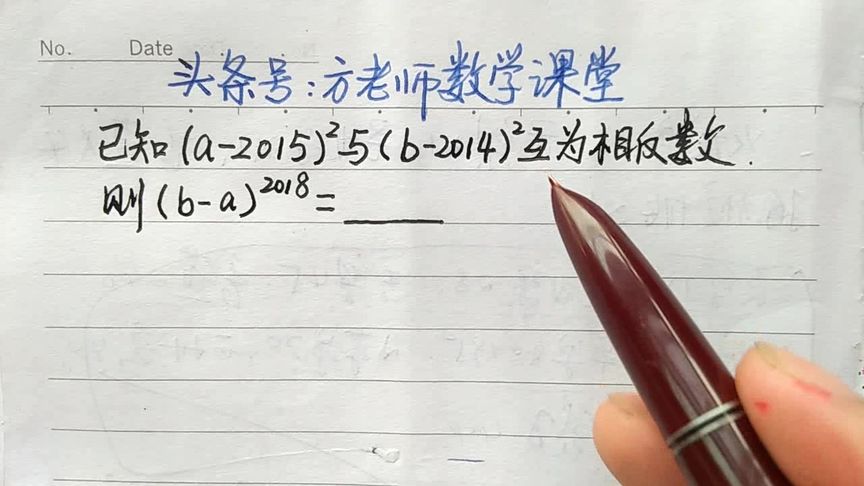 No. Date
头条号:方老师数学课堂
已知(a-2015)²与(b-2014)²互为相反数.
则(b-a)²⁰¹⁸=______